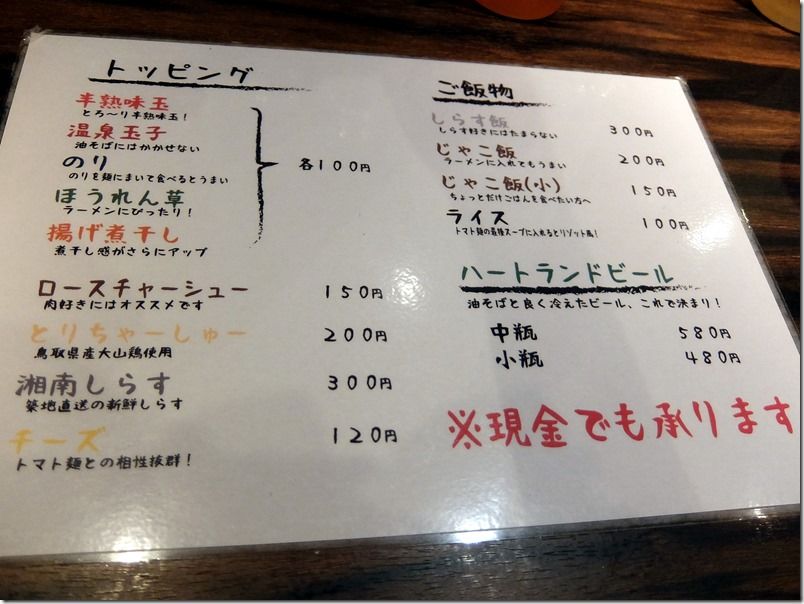 トッピング
半熟味玉
とろ〜り半熟味玉！
温泉玉子
油そばにはかかせない
のり
のりを麺にまいて食べるとうまい
ほうれん草
ラーメンにぴったり！
揚げ煮干し
煮干し感がさらにアップ
各100円
ロースチャーシュー 150円
肉好きにはオススメです
とりちゃーしゅー 200円
鳥取県産大山鶏使用
湘南しらす 300円
築地直送の新鮮しらす
チーズ 120円
トマト麺との相性抜群！
ご飯物
しらす飯 300円
しらす好きにはたまらない
じゃこ飯 200円
ラーメンに入れてもうまい
じゃこ飯(小) 150円
ちょっとだけごはんを食べたい方へ
ライス 100円
トマト麺の最後スープに入れるとリゾット風！
ハートランドビール
油そばと良く冷えたビール、これで決まり！
中瓶 580円
小瓶 480円
※現金でも承ります